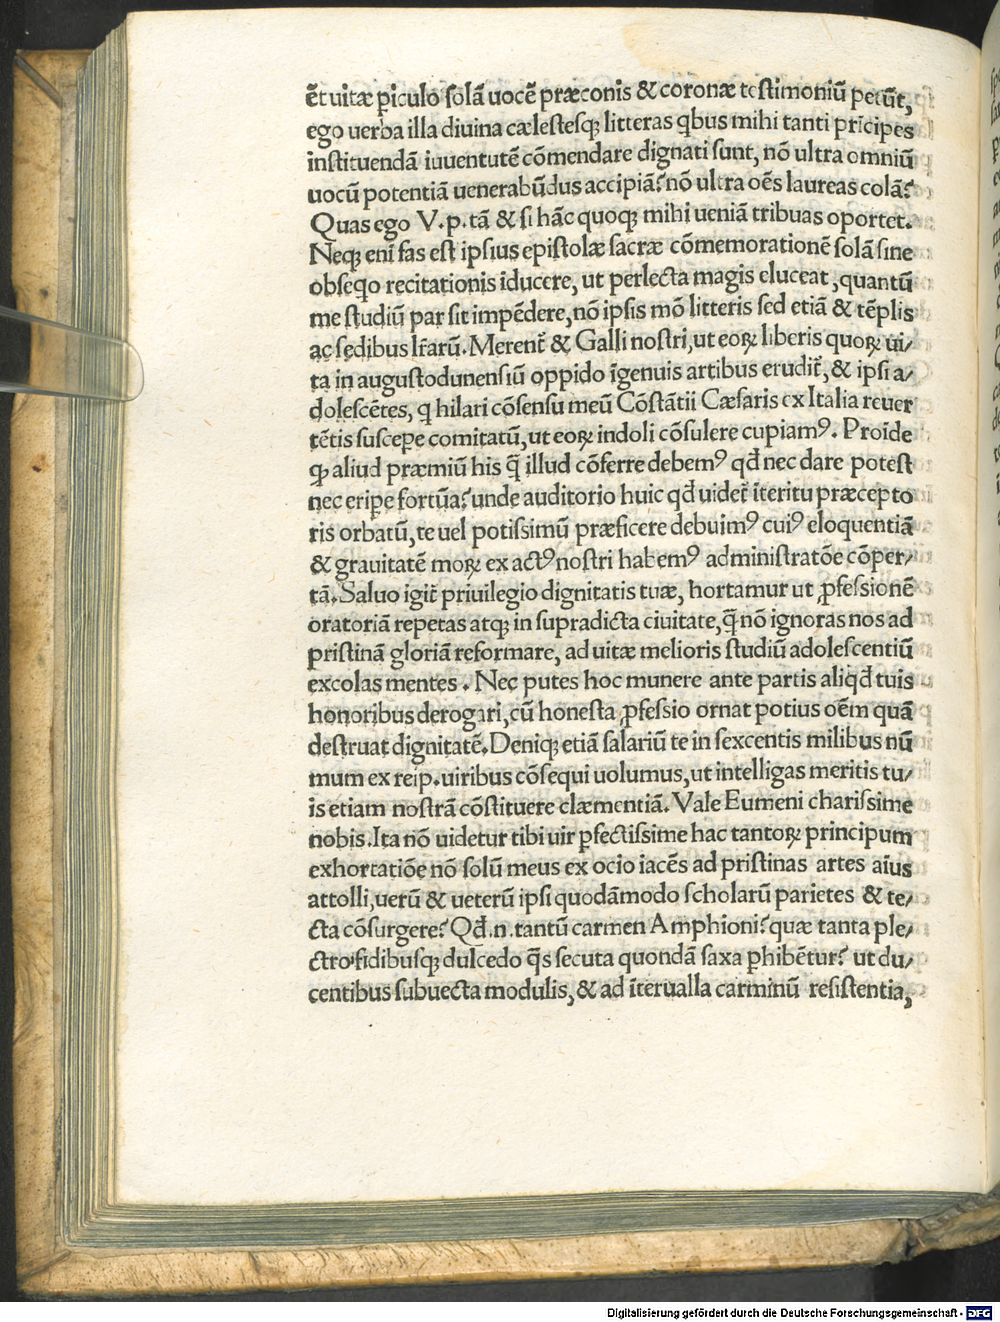 ēt uitæ ꝑiculo ſolā uocē præconis & coronæ teſtimoniū petūt,
ego uerba illa diuina cæleſteſqꝫ litteras qbus mihi tanti prīcipes
inſtituendā iuuentutē cōmendare dignati ſunt, nō ultra omniū
uocū potentiā uenerabūdus accipiā? nō ultra oēs laureas colā?
Quas ego V.p. tā & ſi hāc quoqꝫ mihi ueniā tribuas oportet.
Neqꝫ enī fas eſt ipſius epiſtolæ ſacræ cōmemorationē ſolā ſine
obſeqo recitationis īducere, ut perlecta magis eluceat, quantū
me ſtudiū par ſit impēdere, nō ipſis mō litteris ſed etiā & tēplis
ac ſedibus lr̄arū. Merent̄ & Galli noſtri, ut eoꝝ liberis quoꝝ ui/
ta in auguſtodunenſiū oppido īgenuis artibus erudit̄, & ipſi a/
doleſcētes, q hilari cōſenſu meū Cōſtātii Cæſaris ex Italia reuer
tētis ſuſcepe comitatū, ut eoꝝ indoli cōſulere cupiamꝰ. Proīde
qꝫ aliud præmiū his q̄ illud cōferre debemꝰ qd̄ nec dare poteſt
nec eripe fortūa? unde auditorio huic qd̄ uidet̄ īteritu præcepto
ris orbatū, te uel potiſſimū præficere debuimꝰ cuiꝰ eloquentiā
& grauitatē moꝝ ex actꝰ noſtri habemꝰ adminiſtratōe cōper/
tā. Saluo igit̄ priuilegio dignitatis tuæ, hortamur ut ꝓfeſſionē
oratoriā repetas atqꝫ in ſupradicta ciuitate, q̄ nō ignoras nos ad
priſtinā gloriā reformare, ad uitæ melioris ſtudiū adoleſcentiū
excolas mentes. Nec putes hoc munere ante partis aliqd̄ tuis
honoribus derogari, cū honeſta ꝓfeſſio ornat potius oēm quā
deſtruat dignitatē. Deniqꝫ etiā ſalariū te in ſexcentis milibus nū
mum ex reip. uiribus cōſequi uolumus, ut intelligas meritis tu/
is etiam noſtrā cōſtituere clæmentiā. Vale Eumeni chariſſime
nobis. Ita nō uidetur tibi uir ꝑfectiſſime hac tantoꝝ principum
exhortatiōe nō ſolū meus ex ocio iacēs ad priſtinas artes aīus
attolli, uerū & ueterū ipſi quodāmodo ſcholarū parietes & te/
cta cōſurgere? Qd̄.n. tantū carmen Amphioni? quæ tanta ple/
ctro fidibuſqꝫ dulcedo q̄s ſecuta quondā ſaxa ꝑhibētur? ut du/
centibus ſubuecta modulis, & ad īterualla carminū reſiſtentia,
Digitalisierung gefördert durch die Deutsche Forschungsgemeinschaft - DFG